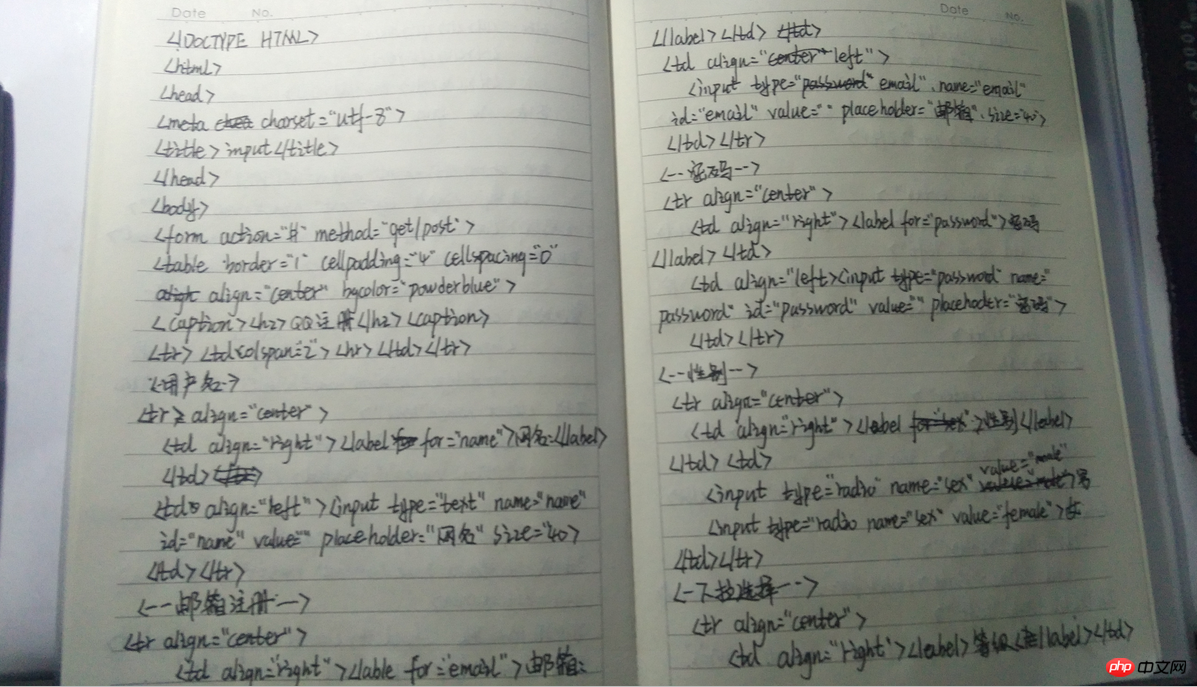 Date No.
<!DOCTYPE HTML>
<html>
<head>
<meta charset="utf-8">
<title>input</title>
</head>
<body>
<form action="#" method="get/post">
<table border="1" cellpadding="4" cellspacing="0"
align="center" bgcolor="powderblue">
<caption><h2>QQ注册</h2><caption>
<tr><td colspan="2"><hr></td></tr>
<-用户名->
<tr align="center">
<td align="right"><label for="name">网名:</label>
</td>
<td align="left"><input type="text" name="name"
id="name" value="" placeholder="网名" size="40>
</td></tr>
<--邮箱注册-->
<tr align="center">
<td align="right"><lable for="email">邮箱:
Date No.
</label></td>
<td align="left">
<input type="email", name="email"
id="email" value="" placeholder="邮箱", size="40>
</td></tr>
<--密码-->
<tr align="center">
<td align="right"><label for="password">密码
</label></td>
<td align="left><input type="password" name="
password" id="password" value="" placehoder="密码">
</td></tr>
<--性别-->
<tr align="center">
<td align="right"><label>性别</label>
</td><td>
value="male"
<input type="radio" name="sex" >男
<input type="radio name="sex" value="female">女
</td></tr>
<-下拉选择-->
<tr align="center">
<td align="right"><label></label></td>
php 中文网